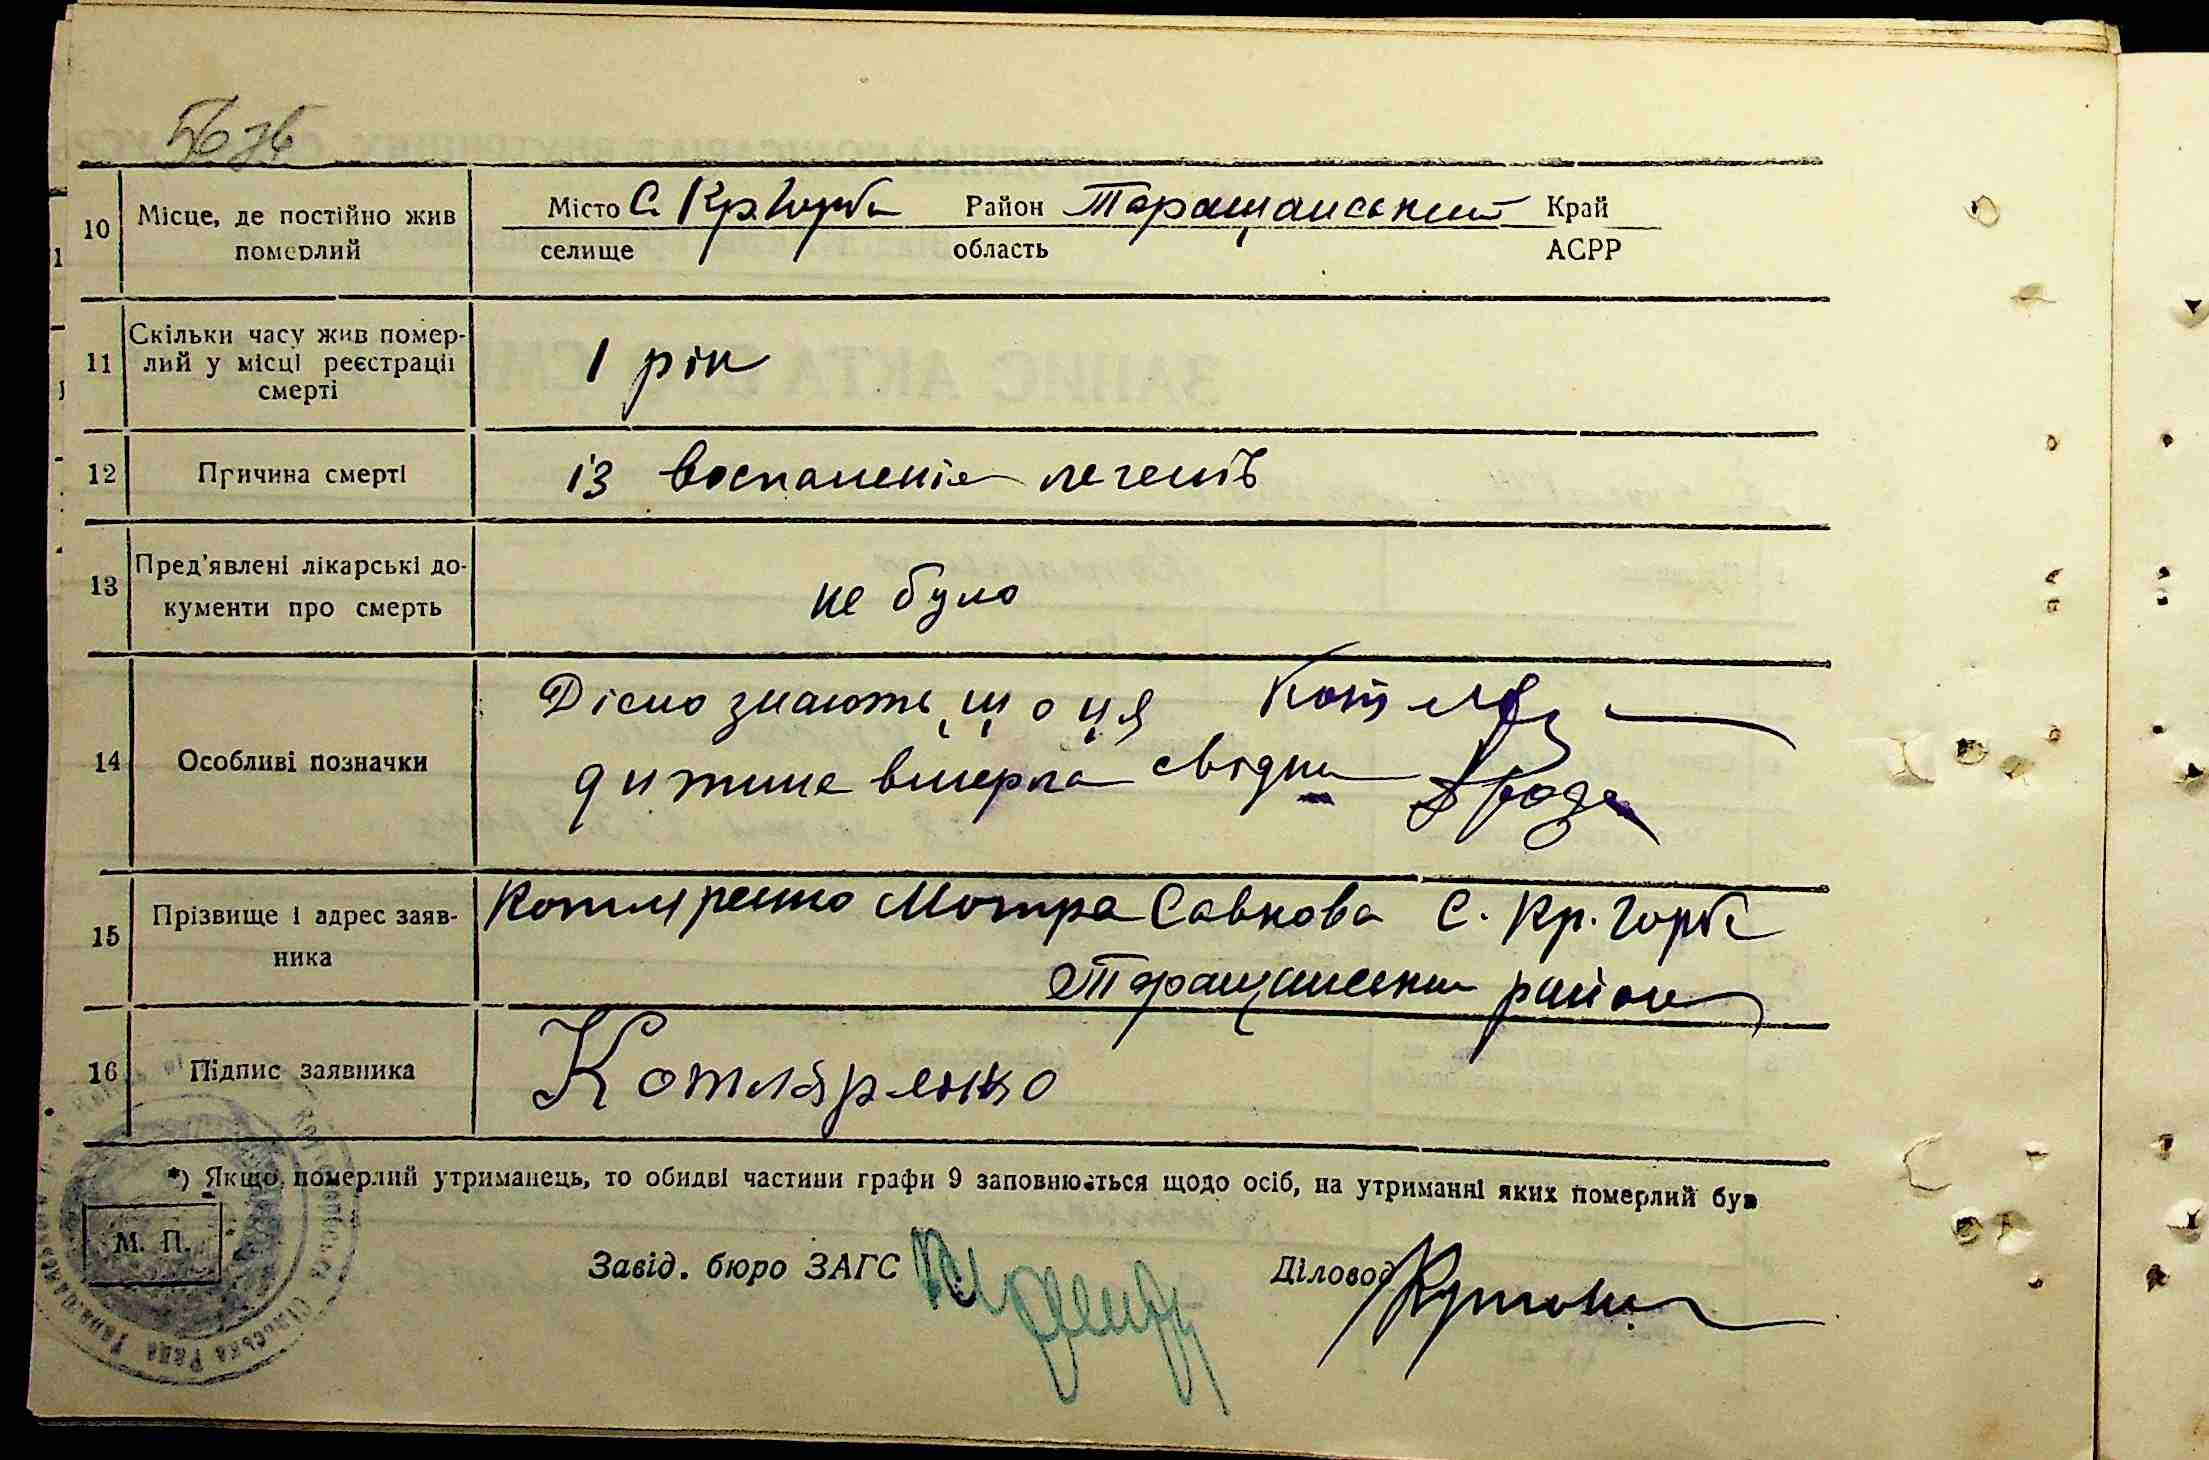 56 зв
10 Місце, де постійно жив померлий
Місто С. Кр. Горби Район Таращанський Край
селище область АСРР
11 Скільки часу жив помер-
лий у місці реєстрації
смерті
1 рік
12 Причина смерті
із воспаления легенів
13 Пред'явлені лікарські до-
кументи про смерть
не було
14 Особливі позначки
Дісно знають що ця
дитина вмерла свідки
15 Прізвище і адрес заяв-
ника
Котляренко Мотра Савкова С. Кр. Горби
Таращански район
16 Підпис заявника
Котляренко
*) Якщо померлий утриманець, то обидві частини графи 9 заповнюються щодо осіб, на утриманні яких померлий був
М. П.
Завід. бюро ЗАГС Діловод
Сільська Рада